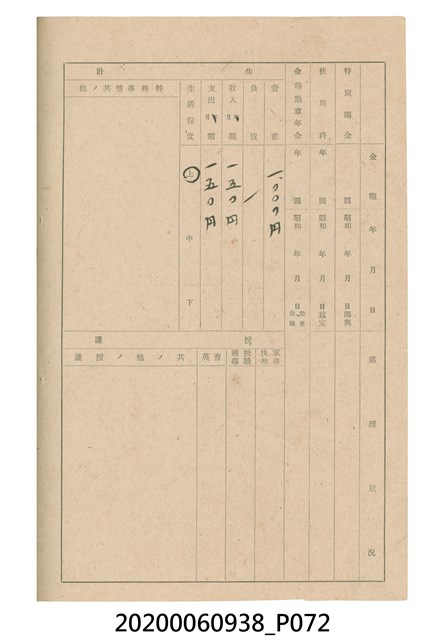 金額年月日
處理狀況
特別賜金 圓昭和 年 月 日賜與
扶助料 年 圓昭和 年 月 日裁定
金鵄勲章年金 年 圓昭和 年 月 日
生計
資産 一、〇〇〇円
負債
收入月額 一五〇円
支出月額 一五〇円
生活程度 上 中 下
特殊事情其ノ他
援護
軍事扶助
育英
其ノ他ノ援護
20200060938_P072